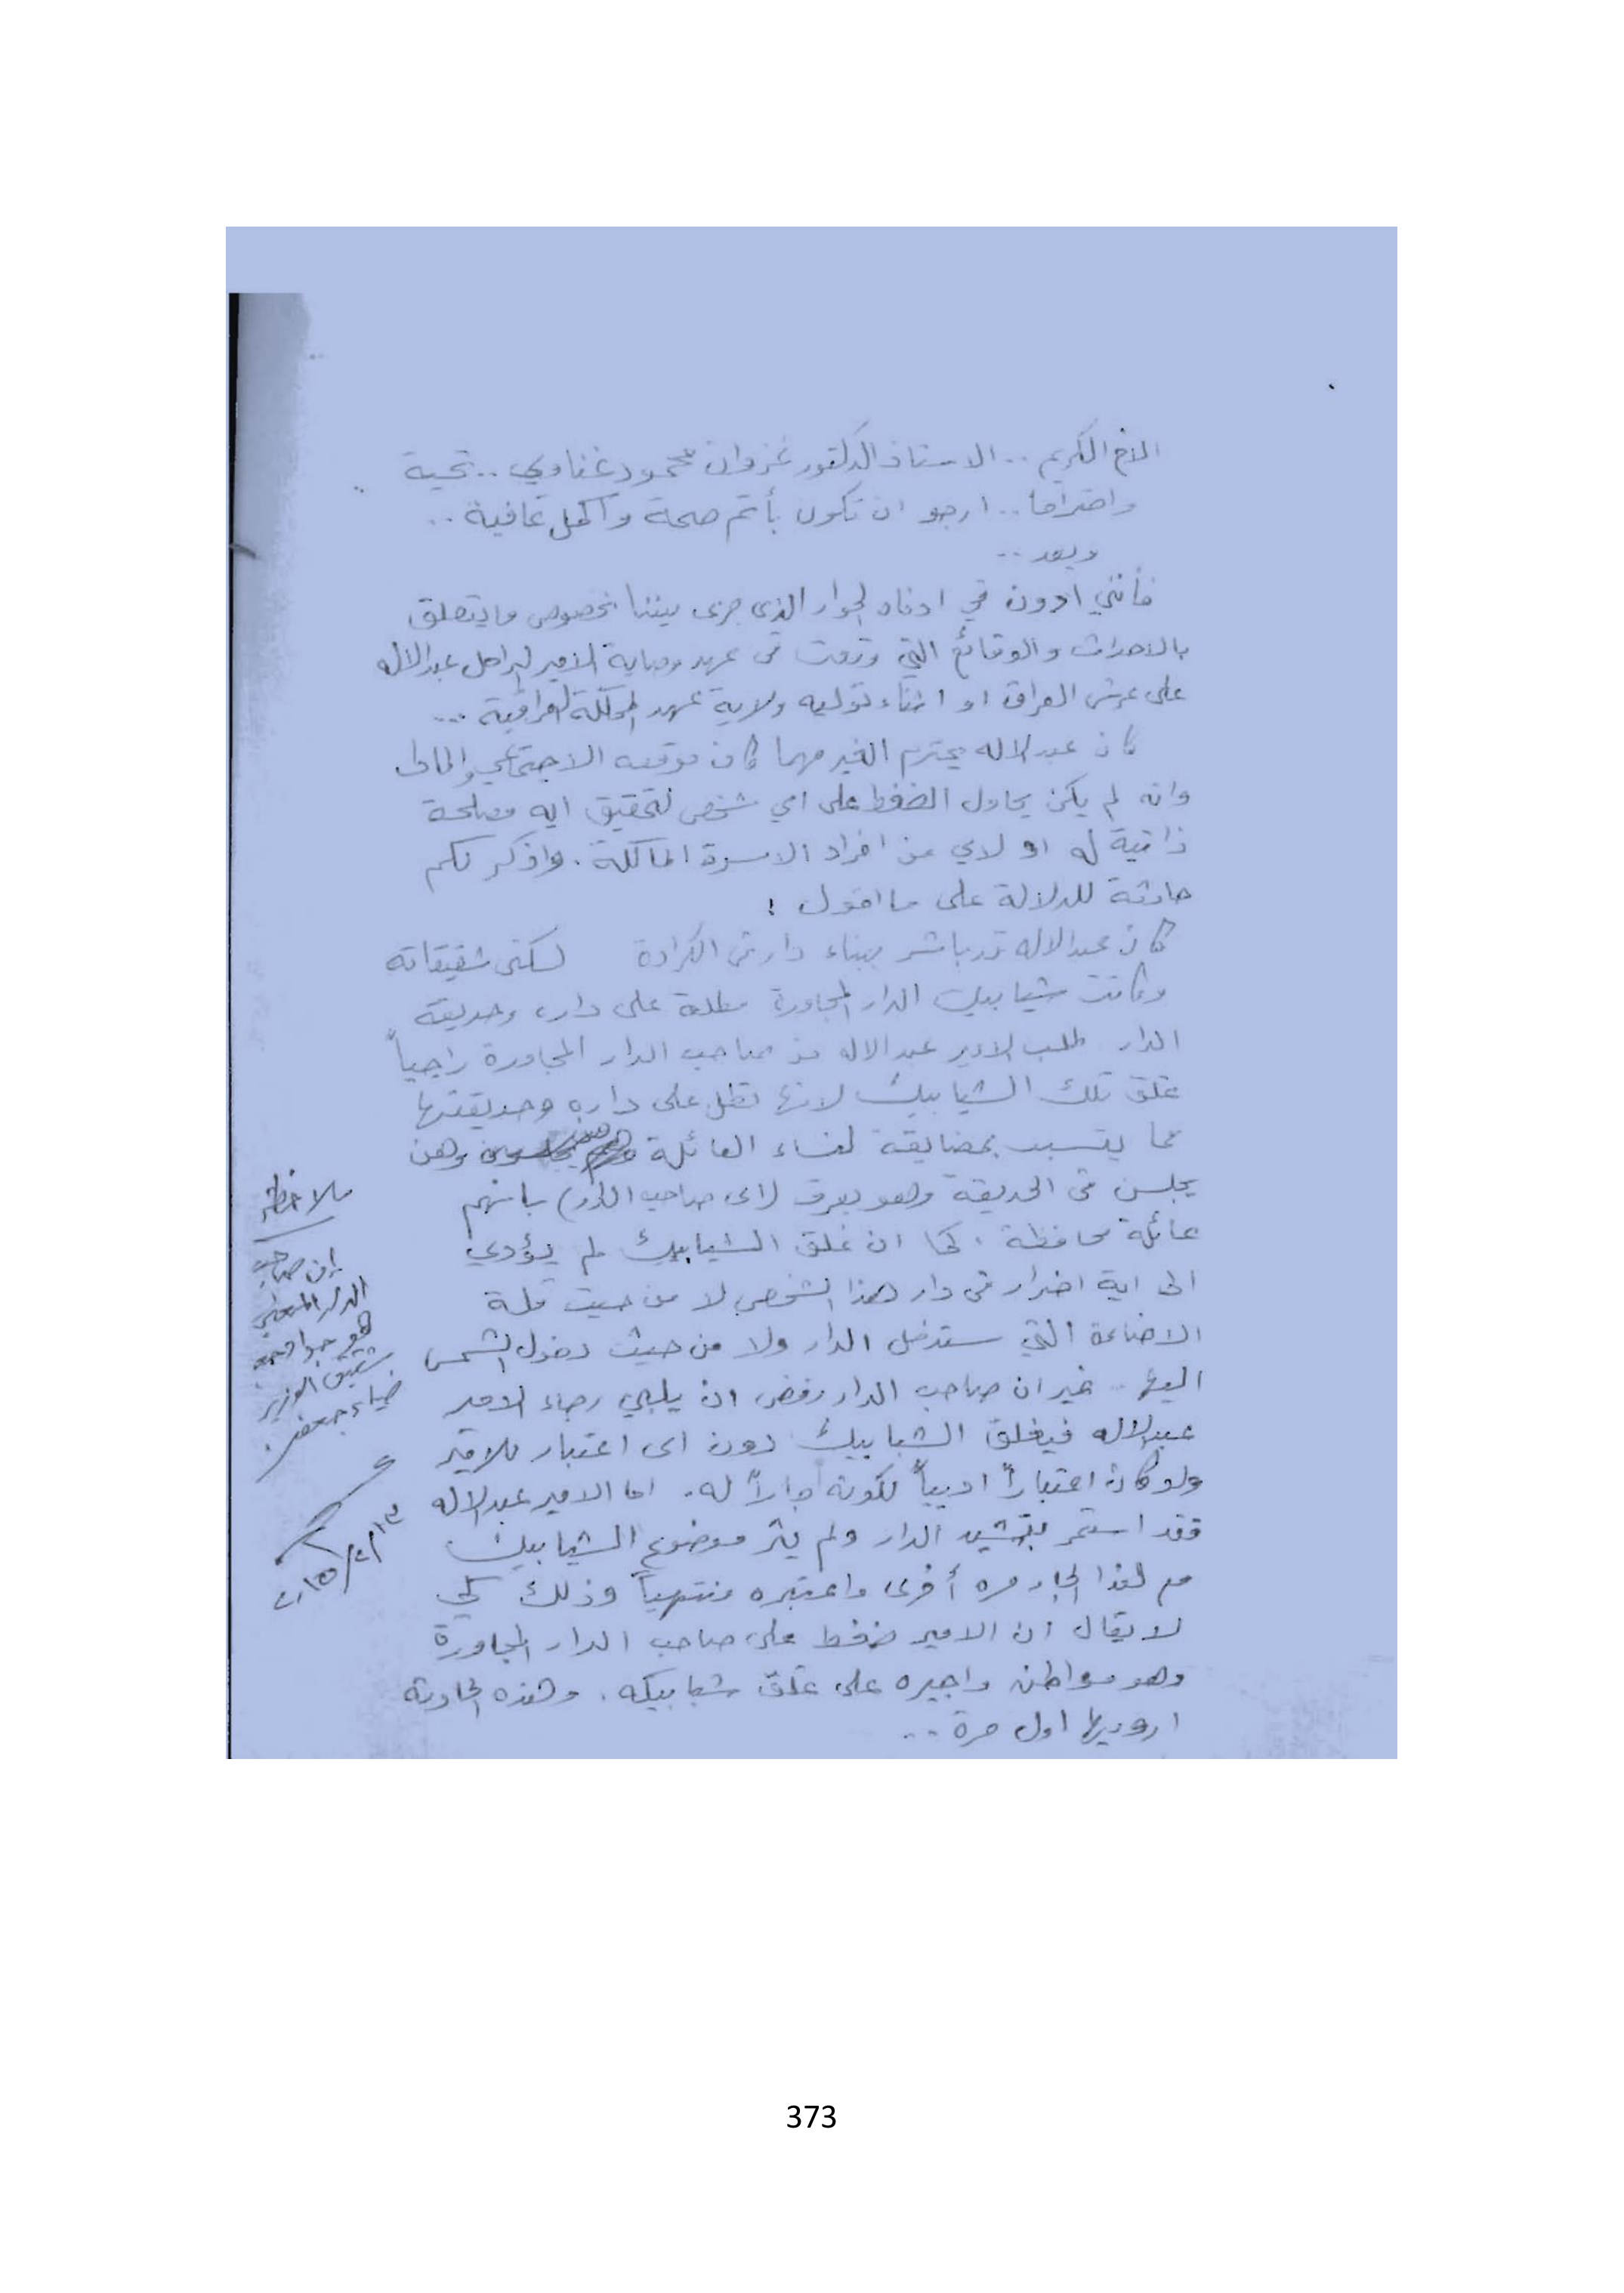 الاخ الكريم .. الاستاذ الدكتور غزوان محمود غناوي .. تحية
واحتراما .. ارجو ان تكون بأتم صحة واكمل عافية ..
وبعد ..
فأنني ادون في ادناه الحوار الذي جرى بيننا بخصوص ما يتعلق
بالاحداث والوقائع التي وقعت في عهد وصاية الامير الراحل عبدالاله
على عرش العراق او اثناء توليه ولاية عهد المملكة العراقية ...
كان عبدالاله يحترم الغير مهما كان موقعه الاجتماعي والمالي
وانه لم يكن يحاول الضغط على اي شخص لتحقيق اية مصلحة
ذاتية له او لاي من افراد الاسرة المالكة . واذكر لكم
حادثة للدلالة على ما اقول :
كان عبدالاله قد باشر ببناء دار في الكرادة لسكنى شقيقاته
وكانت شبابيك الدار المجاورة مطلة على داره وحديقة
الدار . طلب الامير عبدالاله من صاحب الدار المجاورة راجياً
غلق تلك الشبابيك لانها تطل على داره وحديقتها
مما يتسبب بمضايقة لنساء العائلة وهن
يجلسن في الحديقة وهو يعرف (اي صاحب الدار) بانهم
عائلة محافظة . كما ان غلق الشبابيك لم يؤدي
الى اية اضرار في دار هذا الشخص لا من حيث قلة
الاضاءة التي ستدخل الدار ولا من حيث دخول الشمس
اليها .. غير ان صاحب الدار رفض ان يلبي رجاء الامير
عبدالاله فيغلق الشبابيك دون اى اعتبار للامير
ولو كان اعتباراً ادبياً لكونه جاراً له . اما الامير عبدالاله
فقد استمر بتشييد الدار ولم يثر موضوع الشبابيك
مع هذا الجار مره أخرى واعتبره منتهياً وذلك كي
لا يقال ان الامير ضغط على صاحب الدار المجاورة
وهو مواطن واجبره على غلق شبابيكه . وهذه الحادثة
ارويها اول مرة ...
ملاحظة
إن صاحب
الدار المعني
هو جواد جعفر
شقيق الوزير
ضياء جعفر .
٢٠١٥/٢/١٣
373